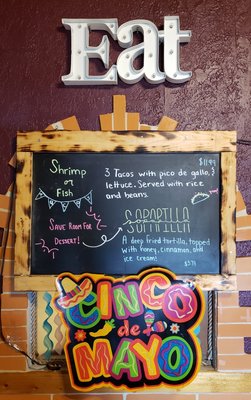 Eat
$11.99
Shrimp
or
Fish
3 Tacos with pico de gallo, &
lettuce. Served with rice
and beans.
SAVE ROOM FOR
DESSERT!
SOPAPILLA
A deep fried tortilla, topped
with honey, cinnamon, and
ice cream!
$5.79
CINCO
de
MAYO